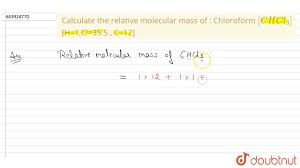 643934770
Calculate the relative molecular mass of : Chloroform [CHCl₃]
[H=1,Cl=35.5 , C=12]
Ans Relative molecular mass of CHCl₃
= 1×12 + 1×1 +
doubtnut